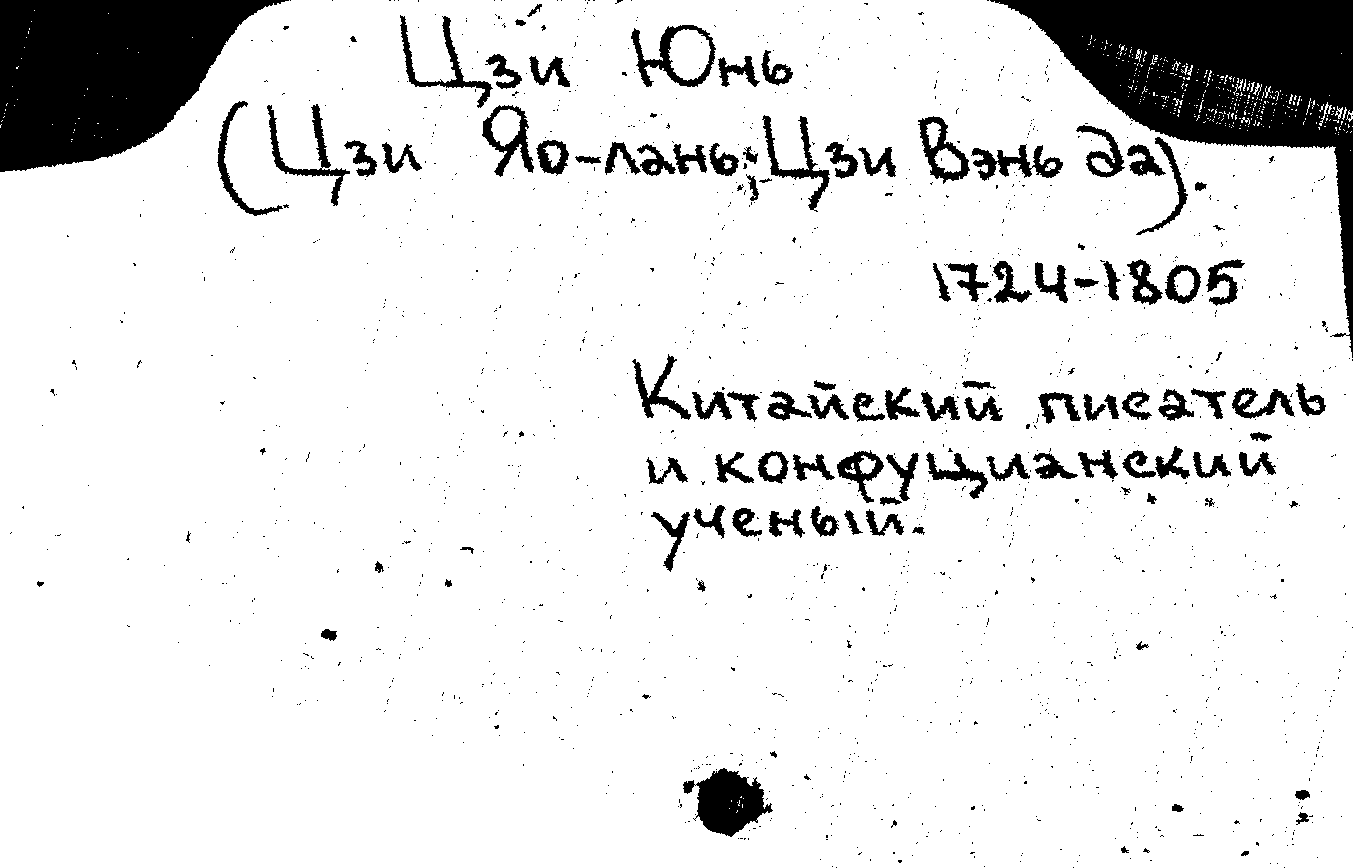 Цзи Юнь
(Цзи Яо-лань; Цзи Вэнь да).
1724-1805
Китайский писатель
и конфуцианский
ученый.